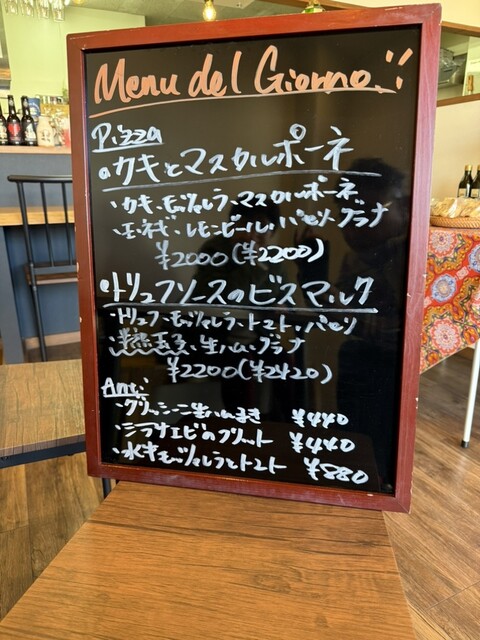 Menu del Giorno
Pizza
カキとマスカルポーネ
・カキ、モッツァレラ、マスカルポーネ
・玉ネギ、レモンピール、パセリ、グラナ
¥2000(¥2200)
トリュフソースのビスマルク
・トリュフ、モッツァレラ、トマト、パセリ
生ハム、グラナ
¥2200(¥2420)
Anti
・グリッシーニ生ハムまき ¥440
・シラサエビのフリット ¥440
・水牛モッツァレラとトマト ¥880